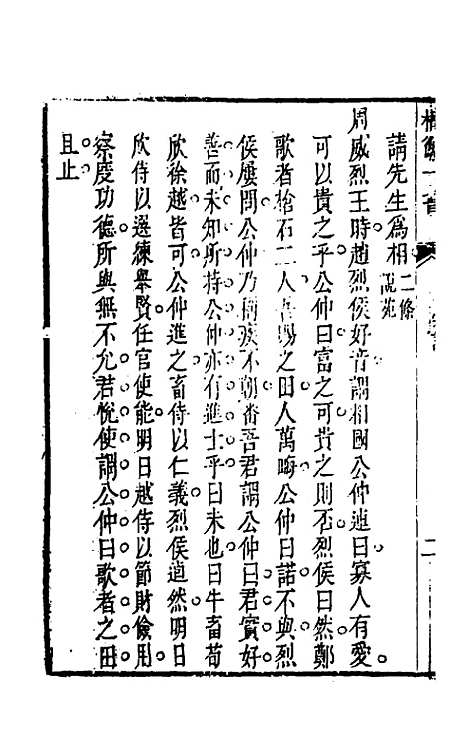 請先生爲相二條說苑
周威烈王時趙烈侯好音謂相國公仲連曰寡人有愛
可以貴之乎公仲曰富之可貴之則否烈侯曰然鄭
歌者槍石二人吾賜之田人萬畮公仲曰諾不與烈
侯屢問公仲乃稱疾不朝番吾君謂公仲曰君實好
善而未知所持公仲亦有進士乎曰未也曰牛畜荀
欣徐越皆可公仲進之畜侍以仁義烈侯逌然明日
欣侍以選練舉賢任官使能明日越侍以節財儉用
察度功德所與無不允君悅使謂公仲曰歌者之田
且止
二